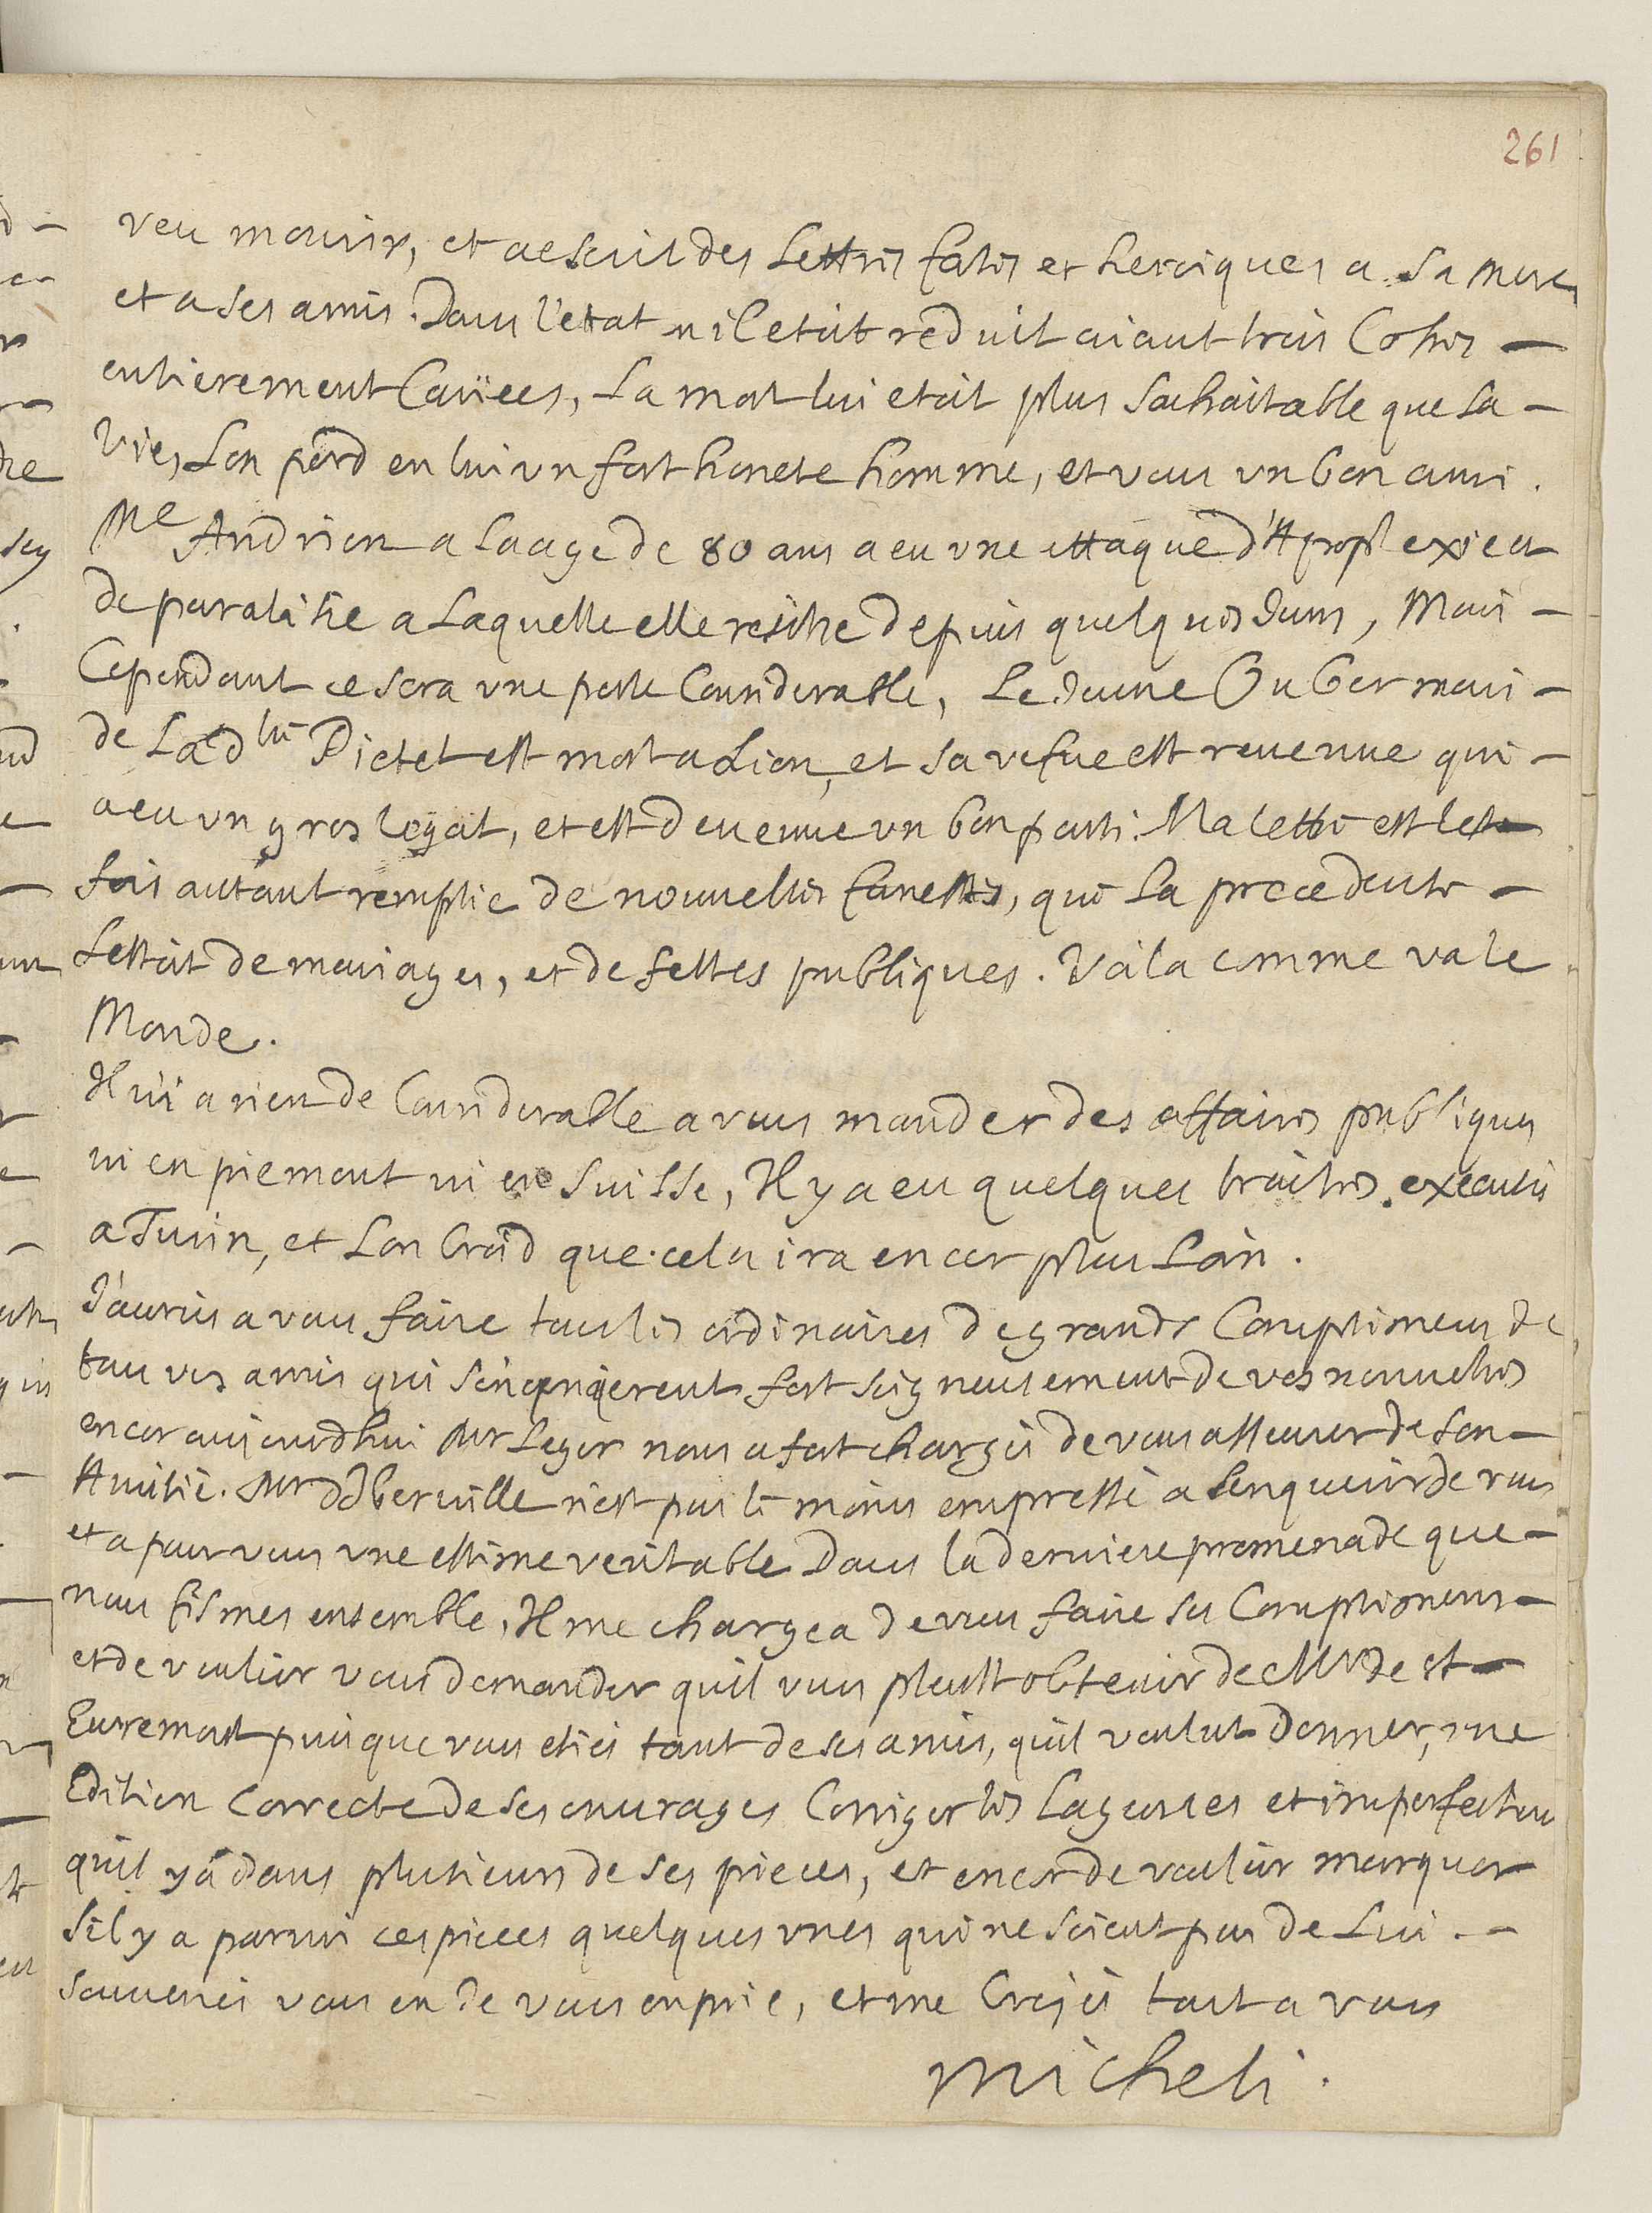 261
veu mourir, et a escrit des Lettres fortes et heroiques a Sa mere
et a ses amis. Dans l'etat u il etoit reduit aiant trois Costes
entierement Cariees, La mort lui etoit plus Souhaitable que La
Vie, Lon perd en lui vn fort honete homme, et vous vn bon ami.
Me Andrion a Laage de 80 ans a eu vne attaque d'Apoplexie et
de paralisie a Laquelle elle resiste depuis quelques Jours, Mais
Cependant ce sera vne perte Considerable, Le Jeune mari
de La Pictet est mort a Lion, et sa vefue est reuenue qui
a eu vn gros legat, et est deuenue vn bon parti. Ma lettre est cette
fois autant remplie de nouuelles funestes, que La precedente
Lestoit de mariages, et de festes publiques. Voila comme va le
Monde.
Il n'i a rien de Considerable a vous mander des affaires publiques
ni en piemont ni en Suisse, Il y a eu quelques traitres executes
a Turin, et Lon Croid que cela ira encor plus Loin.
J'aurois a vous faire tous les ordinaires de grands Complimens de
tous vos amis qui s'enquierent fort soigneusement de vos nouuelles
encor auiourdhui Mr Leger nous a fort charges de vous asseurer de Son
Amitie. Mr Dobleruille n'est pas le moins empressé a Senquerir de vous
et a pour vous vne estime veritable Dans la derniere promenade que
nous fismes ensemble, Il me chargea de vous faire ses Complimens
et de vouloir vous demander quil vous pleust obtenir de Mr de St
Euremont puisque vous eties tant de ses amis, quil voulut donner, vne
Edition correcte de ses ouurages Corriger les Lagunes et imperfections
quil y a dans plusieurs de ses pieces, et encor de vouloir marquer
Sil y a parmi ces pieces quelques vnes qui ne soient pas de Lui.
Souuenes vous en de vous en prie, et me Croies tout a vous
Micheli.